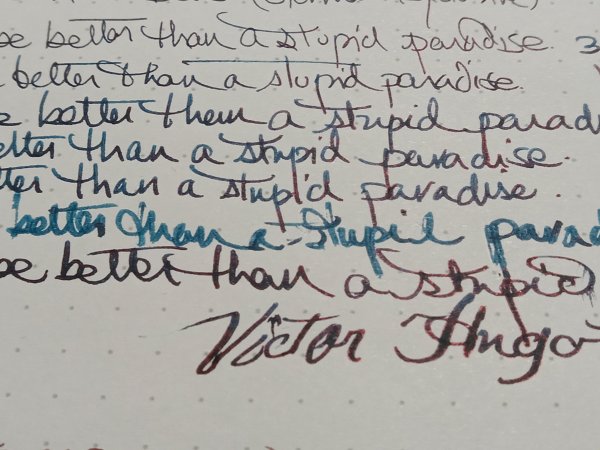 be better than a stupid paradise. 3
better than a stupid paradise.
better them a stupid parad
etter than a stupid paradise.
tter than a stupid paradise.
better than a stupid parad
be better than a stupid
Victor Hugo